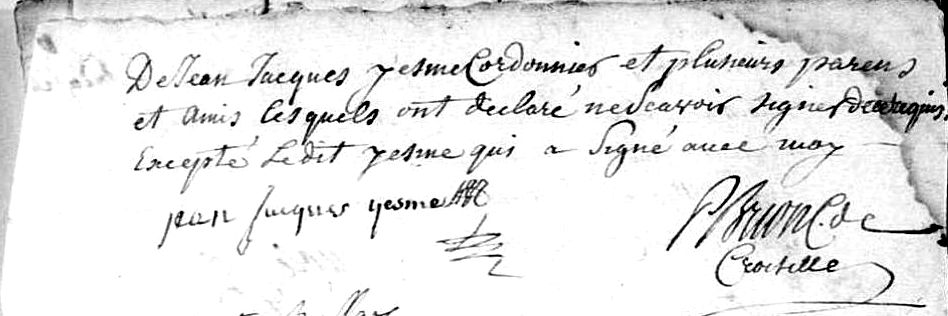 De Jean Jacques yesme Cordonnier et plusieurs parens
et amis lesquels ont declaré ne scavoir signer de ce requis,
Excepté Ledit yesme qui a signé avec moy
jean Jacques yesme
PBrion C. de
Croisille